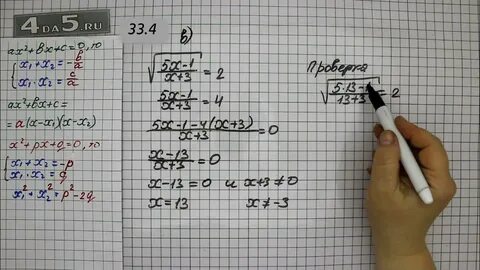 4DA5.RU
33.4
ax²+bx+c=0, то
{x₁+x₂=-b/a
x₁·x₂=c/a
ax²+bx+c=
=a(x-x₁)(x-x₂)
x²+px+q=0, то
{x₁+x₂=-p
x₁·x₂=q
x₁²+x₂²=p²-2q
в)
√((5x-1)/(x+3))=2
(5x-1)/(x+3)=4
(5x-1-4(x+3))/(x+3)=0
(x-13)/(x+3)=0
x-13=0 и x+3≠0
x=13 x≠-3
Проверка
√((5·13-1)/(13+3))=2